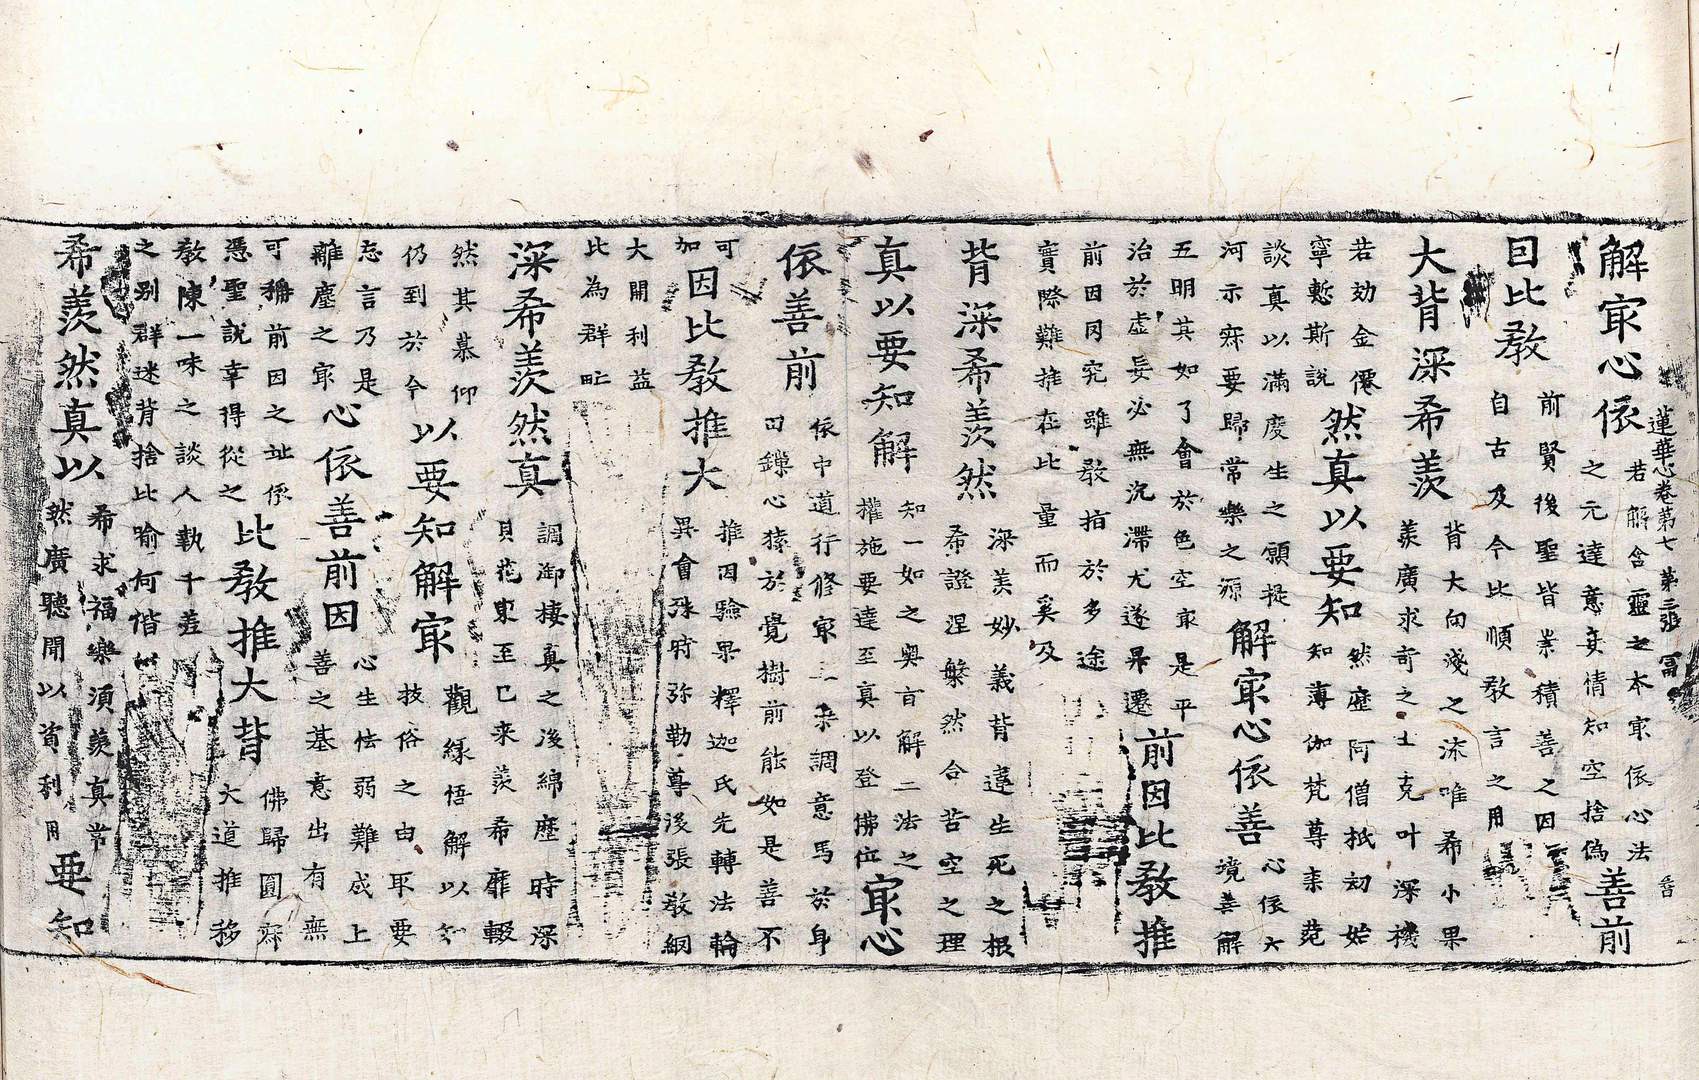 解㝡心依
若解含靈之本㝡依心法
之元達意妄情知空捨偽
善前
蓮華心卷第七 第三張 冨
因比教
前賢後聖皆崇積善之因
自古及今比順教言之用
大背深希羡
背大向淺之流唯希小果
羡廣求奇之士克叶深機
若効金僊
寧慙斯說
然真以要知
然歷阿僧祇初始
知薄伽梵尊来苑
談真以滿度生之願提
河示寂要歸常樂之源
解㝡心依善
心依六
境善解
五明其如了會於色空㝡是平
治於虛妄必無沉滯尤遂昇遷
前因比教推
前因罔究雖教指於多途
實際難推在比量而奚及
背深希羡然
深羡妙義背違生死之根
希證涅槃然合苦空之理
真以要知解
知一如之奥旨解二法之
權施要達至真以登佛位
㝡心
依善前
依中道行修㝡三乘調意馬於身
田鏁心猿於覺樹前能如是善不
可
加
因比教推大
推因驗果釋迦氏先轉法輪
異會殊時弥勒尊後張教網
大開利益
比為群甿
深希羡然真
調御棲真之後綿歷時深
貝花東至已来羡希靡輟
然其慕仰
仍到於今
以要知解㝡
觀緣悟解以知
技俗之由耶要
忘言乃是
離塵之㝡
心依善前因
心生怯弱難成上
善之基意出有無
可稱前因之址依
憑聖說幸得從之
比教推大背
佛歸圓寂
大道推移
教陳一味之談人執千差
之别群迷背捨比喻何偕
希羡然真以
希求福樂須羡真常
然廣聽聞以資利用
要知